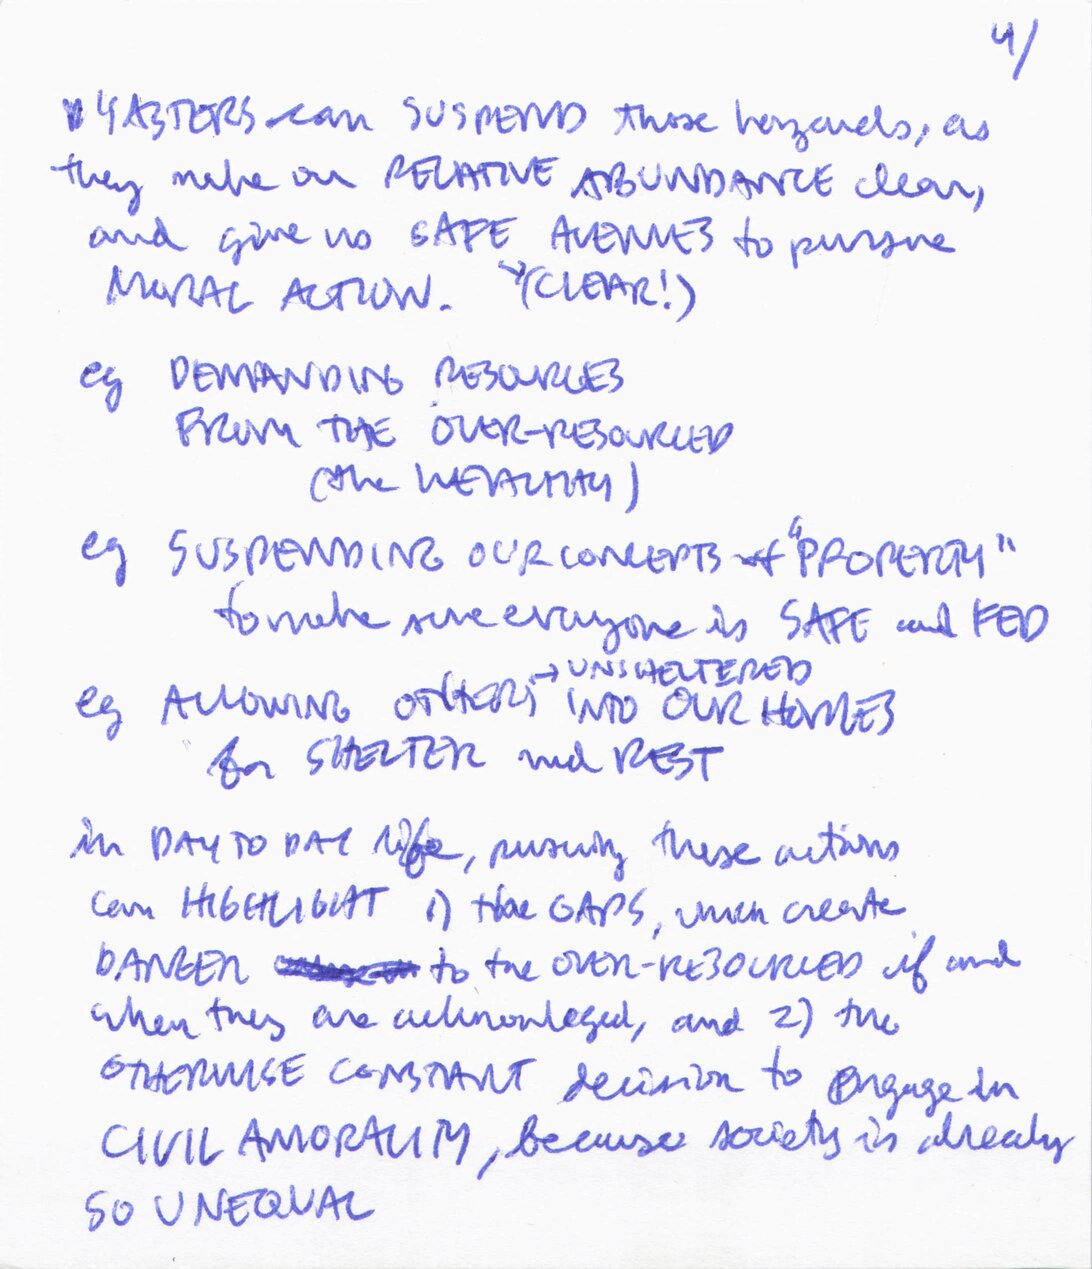 4/
DISASTERS can SUSPEND those hazards, as
they make our RELATIVE ABUNDANCE clear,
and give us SAFE AVENUES to pursue
MORAL ACTION. (CLEAR!)
eg DEMANDING RESOURCES
FROM THE OVER-RESOURCED
(the WEALTHY)
eg SUSPENDING OUR CONCEPTS of "PROPERTY"
to make sure everyone is SAFE and FED
→ UNSHELTERED
eg ALLOWING OTHERS INTO OUR HOMES
for SHELTER and REST
in DAY TO DAY life, pursuing these actions
can HIGHLIGHT 1) the GAPS, which create
DANGER to the OVER-RESOURCED if and
when they are acknowleged, and 2) the
OTHERWISE CONSTANT decision to engage in
CIVIL AMORALITY, because society is already
SO UNEQUAL